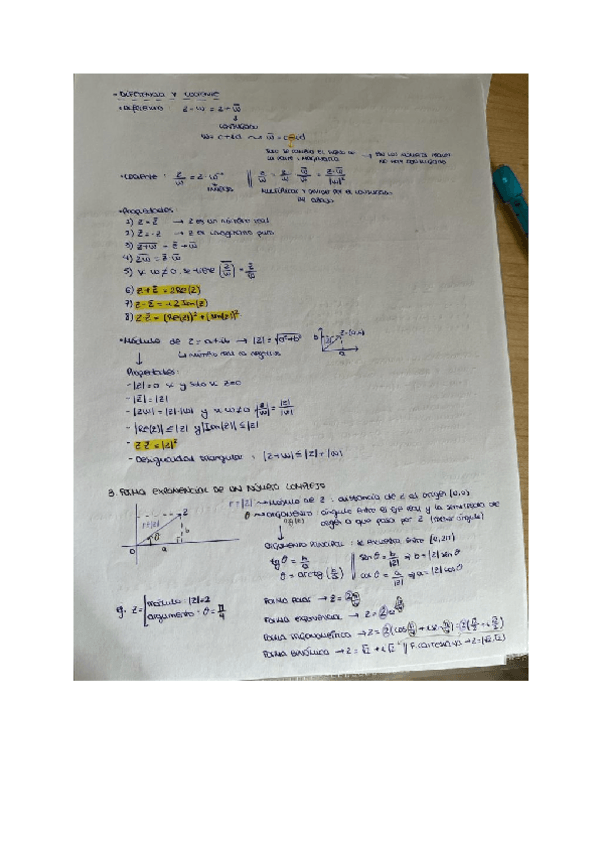 • DIFERENCIA Y COCIENTE
• DIFERENCIA : z - w = z -
CONJUGADO
w = c+id ⇝ w̄ = c-id
SOLO SE CAMBIA EL SIGNO DE LA PARTE IMAGINARIA
• COCIENTE : z/w = z·w⁻¹ || z/w = z/w · w̄/w̄ = z·w̄/|w|²
MULTIPLICAR Y DIVIDIR POR EL CONJUGADO
• Propiedades:
1) z = z̄ → z es un número real
2) z̄ = -z → z es imaginario puro
3) z+w = z̄ + w̄
4) zw = z̄·w̄
5) si w≠0, se tiene (z/w) = z̄/w̄
6) z + z̄ = 2Re(z)
7) z - z̄ = 2 Im(z)
8) z·z̄ = (Re(z))² + (Im(z))²
• Módulo de z = a+ib → |z| = √a²+b²
↳ número real no negativo
Propiedades:
- |z| = 0 si y solo si z=0
- |z̄| = |z|
- |zw| = |z|·|w| y si w≠0 |z/w| = |z|/|w|
- |Re(z)| ≤ |z| y |Im(z)| ≤ |z|
- z·z̄ = |z|²
- Desigualdad triangular : |z+w| ≤ |z|+|w|
3. FORMA EXPONENCIAL DE UN NÚMERO COMPLEJO
r = |z| ⇝ módulo de z : distancia de z al origen (0,0)
θ ⇝ argumento : ángulo entre el eje real y la semirrecta de
origen o que pasa por z
ARGUMENTO PRINCIPAL : se encuentra entre [0, 2π)
tg θ = b/a || sen θ = b/|z| ⇒ b = |z| sen θ
θ = arctg (b/a) || cos θ = a/|z| ⇒ a = |z| cos θ
ej. z = módulo : |z| = 2
argumento : θ = π/4
FORMA POLAR → z = 2 π/4
FORMA EXPONENCIAL → z = 2e
FORMA TRIGONOMÉTRICA → z = 2 (cos π/4 + i sen π/4)
FORMA BINÓMICA → z = √2 + i√2 || F. CARTESIANA → z = (√2, √2)